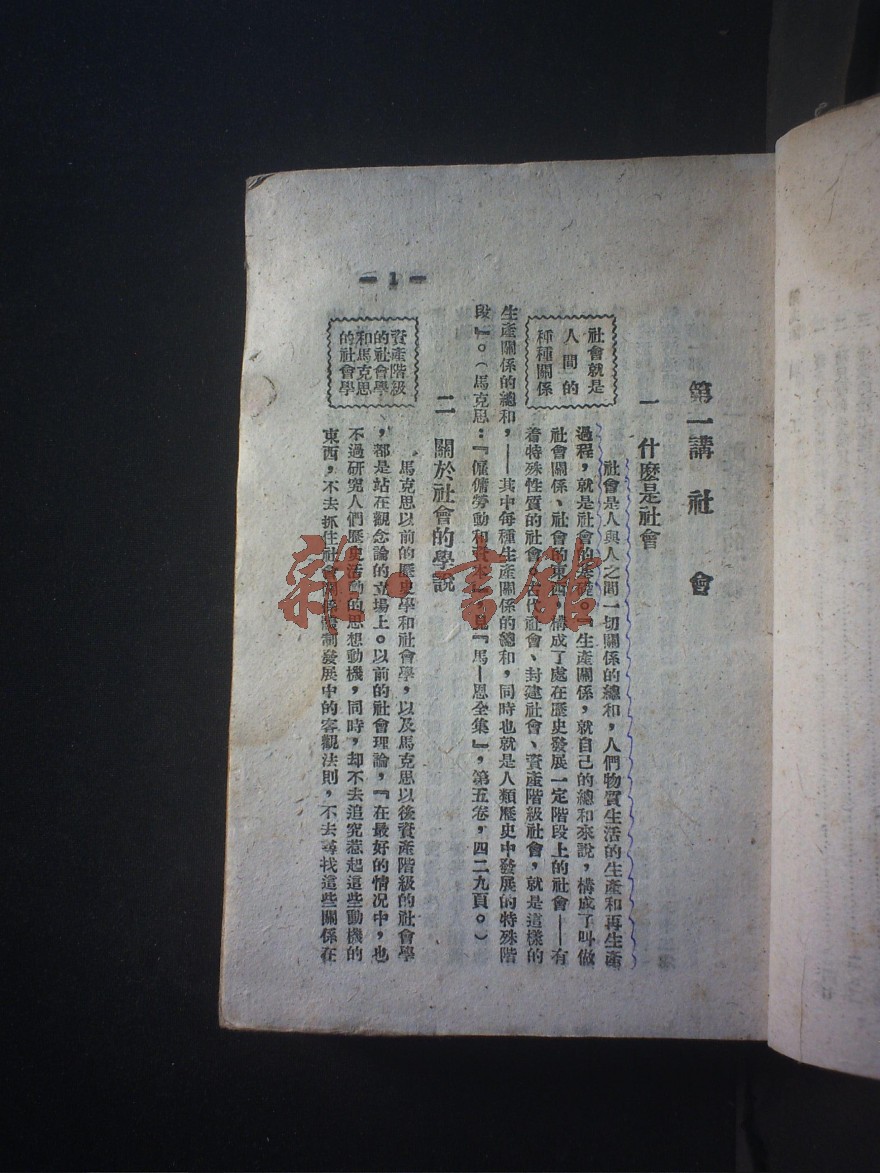 第一講　社　會
一　什麼是社會
社會就是
人間的
種種關係
社會是人與人之間一切關係的總和，人們物質生活的生產和再生產
過程，就是社會的基礎。『生產關係，就自己的總和來說，構成了叫做
社會關係、社會的東西，構成了處在歷史發展一定階段上的社會——有
着特殊性質的社會。古代社會、封建社會、資產階級社會，就是這樣的
生產關係的總和，——其中每種生產關係的總和，同時也就是人類歷史中發展的特殊階
段』。（馬克思：『僱傭勞動和資本』，見『馬—恩全集』，第五卷，四二九頁。）
二　關於社會的學說
資產階級
的社會學
和馬克思
的社會學
馬克思以前的歷史學和社會學，以及馬克思以後資產階級的社會學
，都是站在觀念論的立場上。以前的社會理論，『在最好的情況中，也
不過研究人們歷史活動的思想動機，同時，却不去追究惹起這些動機的
東西，不去抓住社會關係體制發展中的客觀法則，不去尋找這些關係在
— 1 —
雜·書館